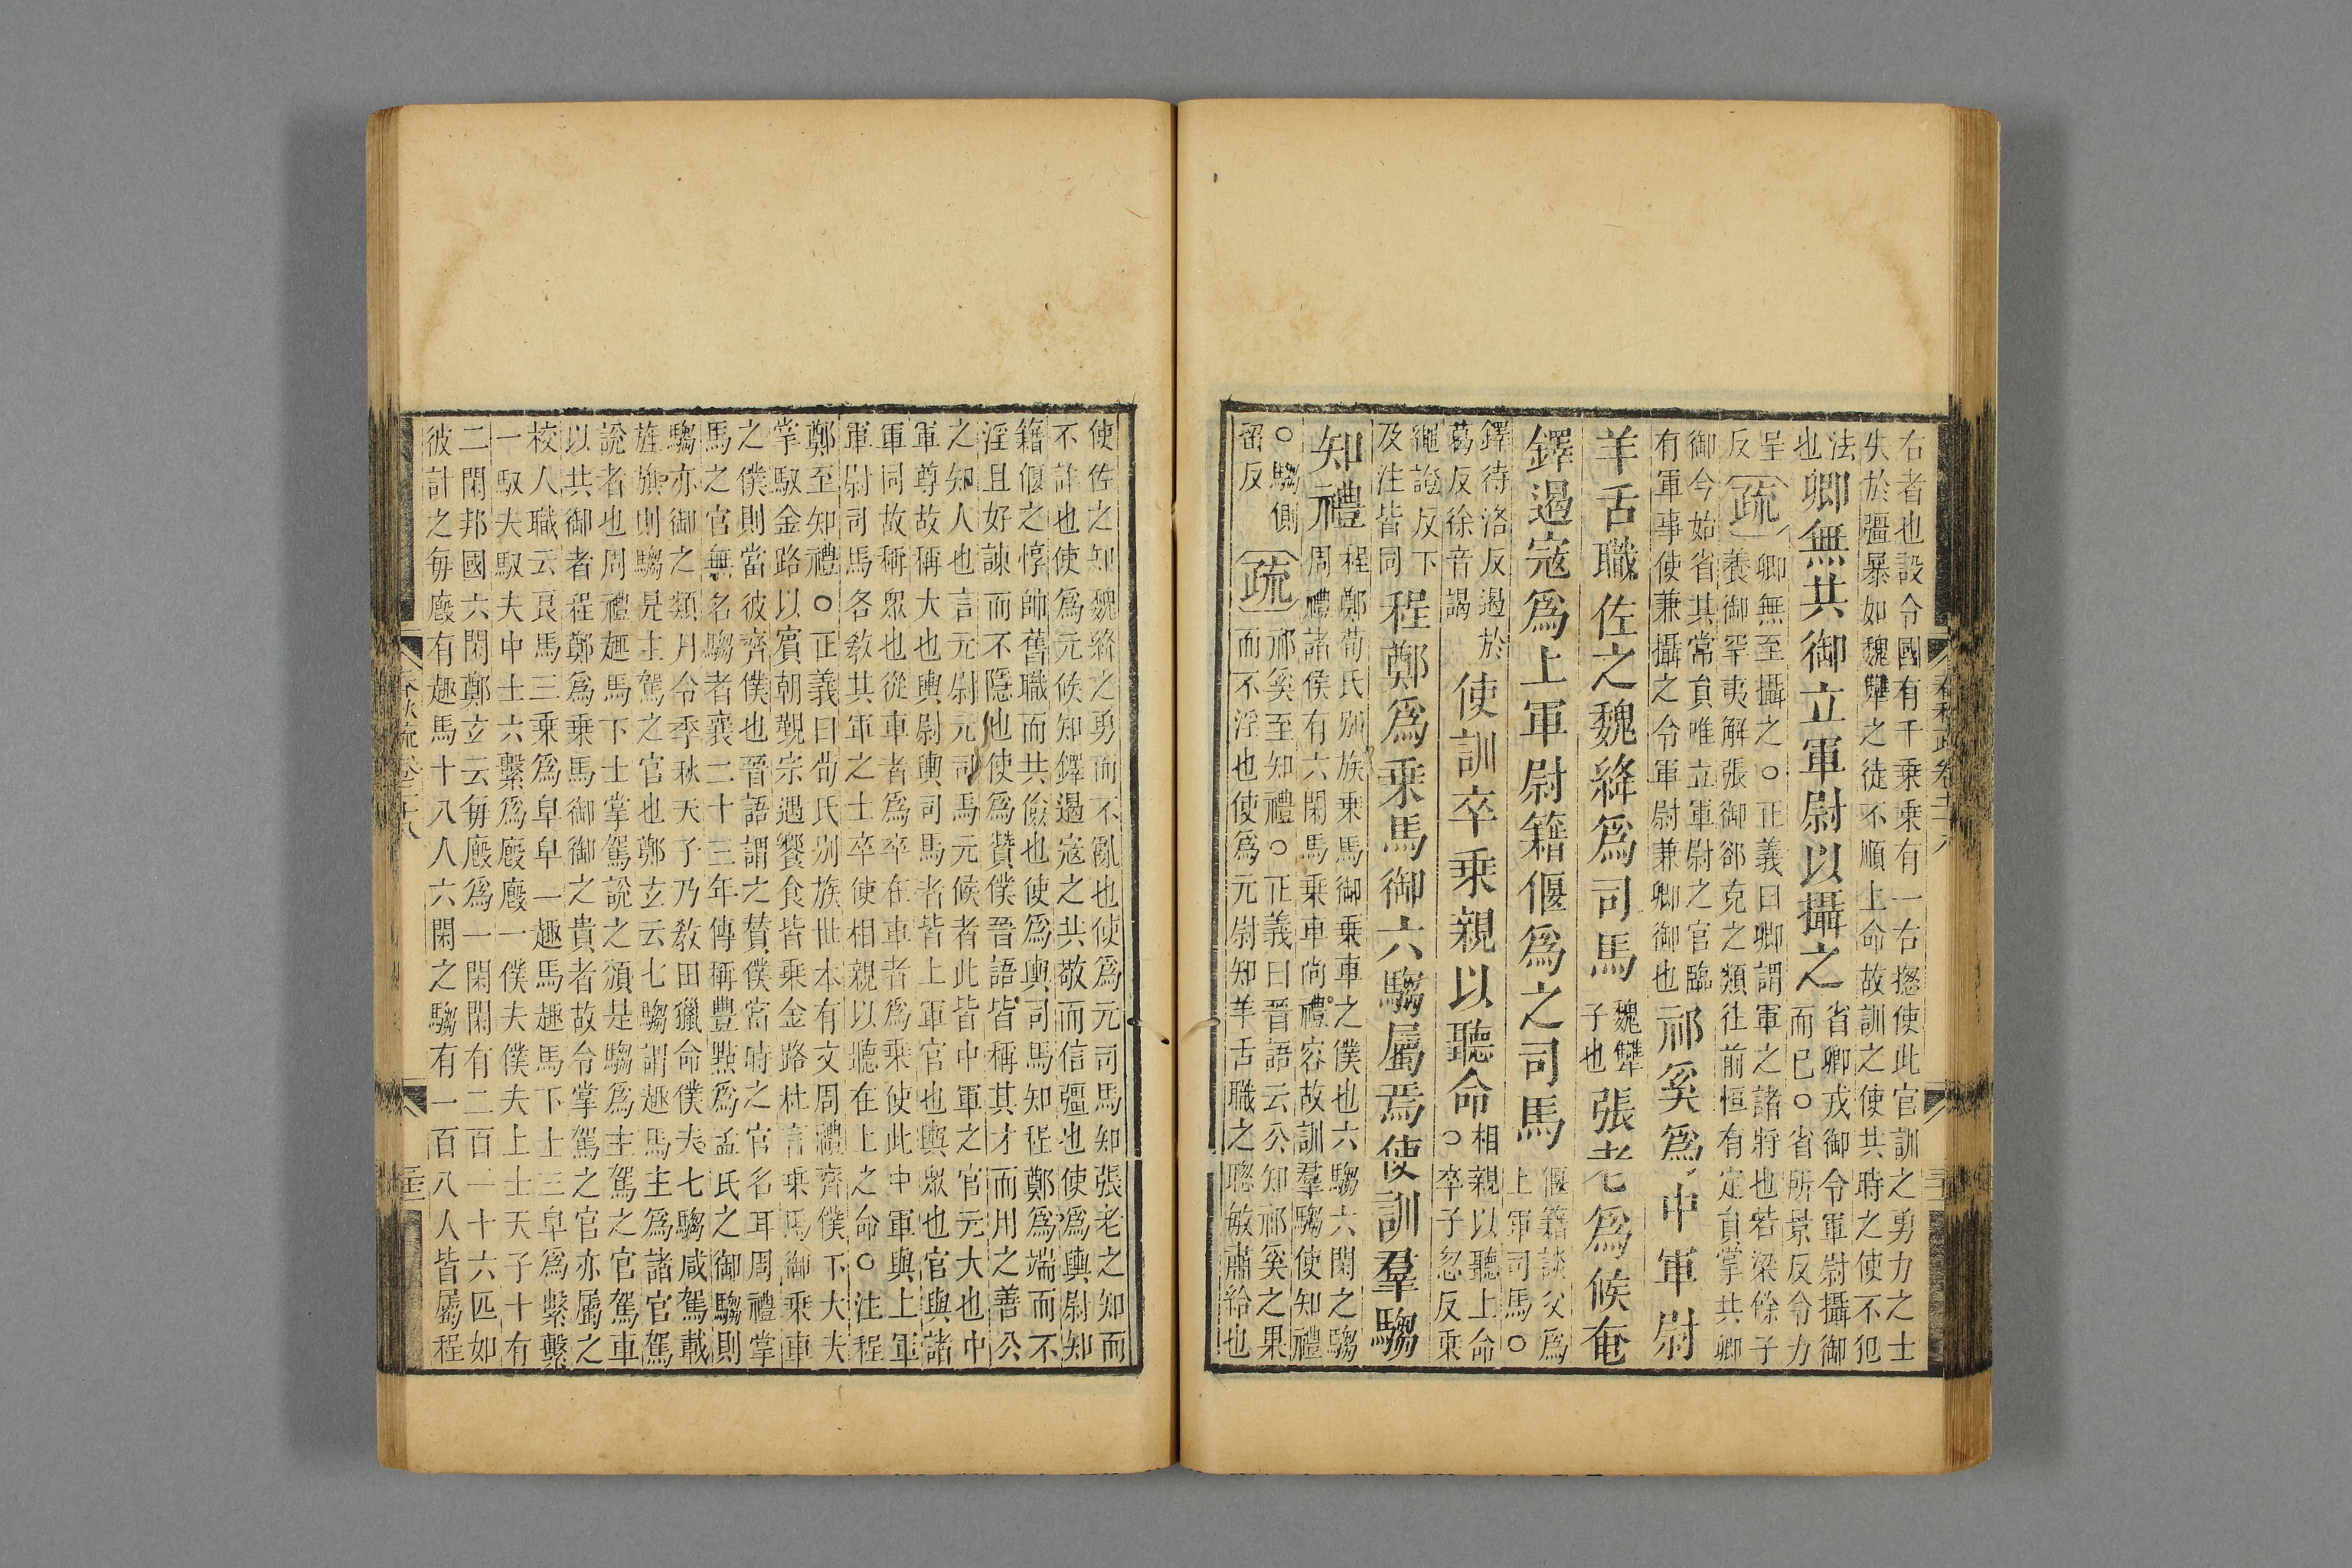 右者也設令國有千乗乗有一右揔使此官訓之勇力之士
失於彊暴如魏犨之徒不順上命故訓之使共時之使不犯
法也卿無共御立軍尉以攝之省卿戎御令軍尉攝御而已○省所景反令力
呈反疏卿無至攝之○正義曰卿謂軍之諸將也若梁餘子養御罕夷解張御郤克之類往前恒有定員掌共卿
御今始省其常員唯立軍尉之官臨有軍事使兼攝之令軍尉兼卿御也祁奚爲中軍尉
羊舌職佐之魏絳爲司馬魏犨子也張老爲候奄
鐸遏寇爲上軍尉籍偃爲之司馬偃籍談父爲上軍司馬○
鐸待洛反遏於葛反徐音謁使訓卒乗親以聽命相親以聽上命○卒子忽反乗
繩證反下及注皆同程鄭爲乗馬御六騶屬焉使訓羣騶
知禮程鄭荀氏别族乗馬御乗車之僕也六騶六閑之騶周禮諸侯有六閑馬乗車尚禮容故訓羣騶使知禮
○騶側留反疏祁奚至知禮○正義曰晉語云公知祁奚之果而不淫也使爲元尉知羊舌職之聰敏肅給也
使佐之知魏絳之勇而不亂也使爲元司馬知張老之知而
不詐也使爲元候知鐸遏寇之共敬而信彊也使爲輿尉知
籍偃之惇帥舊職而共儉也使爲輿司馬知程鄭爲端而不
淫且好諫而不隱也使爲贊僕晉語皆稱其才而用之善公
之知人也言元尉元司馬元候者此皆中軍之官元大也中
軍尊故稱大也輿尉輿司馬者皆上軍官也輿眾也官與諸
軍同故稱眾也從車者爲卒在車者爲乗使此中軍與上軍
軍尉司馬各教其軍之士卒使相親以聽在上之命○注程
鄭至知禮○正義曰荀氏别族世本有文周禮齊僕下大夫
掌馭金路以賓朝覲宗遇饗食皆乗金路杜言乗馬御乗車
之僕則當彼齊僕也晉語謂之贊僕當時之官名耳周禮掌
馬之官無名騶者襄二十三年傳稱豐點爲孟氏之御騶則
騶亦御之類月令季秋天子乃教田獵命僕夫七騶咸駕載
旌旗則騶是主駕之官也鄭玄云七騶謂趣馬主爲諸官駕
說者也周禮趣馬下士掌駕說之頒是騶爲主駕之官駕車
以共御者程鄭爲乗馬御御之貴者故令掌駕之官亦屬之
校人職云良馬三乗爲皁皁一趣馬趣馬下士三皁爲繫繫
一馭夫馭夫中士六繫爲廄廄一僕夫僕夫上士天子十有
二閑邦國六閑鄭玄云毎廄爲一閑閑有二百一十六匹如
彼計之毎廄有趣馬十八人六閑之騶有一百八人皆屬程